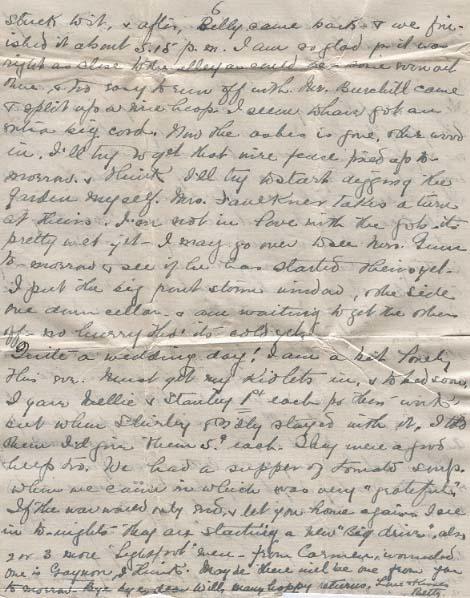 6
stuck to it, & after, Billy came back & we fin-
ished it about 5.15 p.m. I am so glad, for it was
right as close to the alley as could be - some one not
ours, & too easy to run off with. Mr. Burchill came
& split up a nice heap. I seem to have got an
extra big cord. Now the ashes is gone, & the wood
in. I'll try to get that wire fence fixed up to-
morrow, & think I'll try to start digging the
garden myself. Mrs. Faulkner takes a turn
at theirs. I'm not in love with the job, its
pretty wet yet - I may go over to see Mrs. Gunn
to-morrow & see if he has started theirs yet.
I put the big front storm window, & the side
one down cellar - & am waiting to get the others
off - no hurry tho' its cold yet.
Quite a wedding day! I am a bit lonely
this eve. Must get my kidlets in, & to bed soon
I gave Nellie & Stanley 1st each for their work
but when Shirley & Billy stayed with it, I told
them I'd give them 5. each. They were a good
help too. We had a supper of tomato soup,
when we came in which was very "grateful".
If the war would only end, & let you home again. I see
in to-night's they are starting a new "Big drive", also
2 or 3 more men - from Carmen, wounded
one is Graynon, I think. Maybe there will be one from you
to-morrow. Bye bye dear Will, many happy returns, Love & kisses
Betty